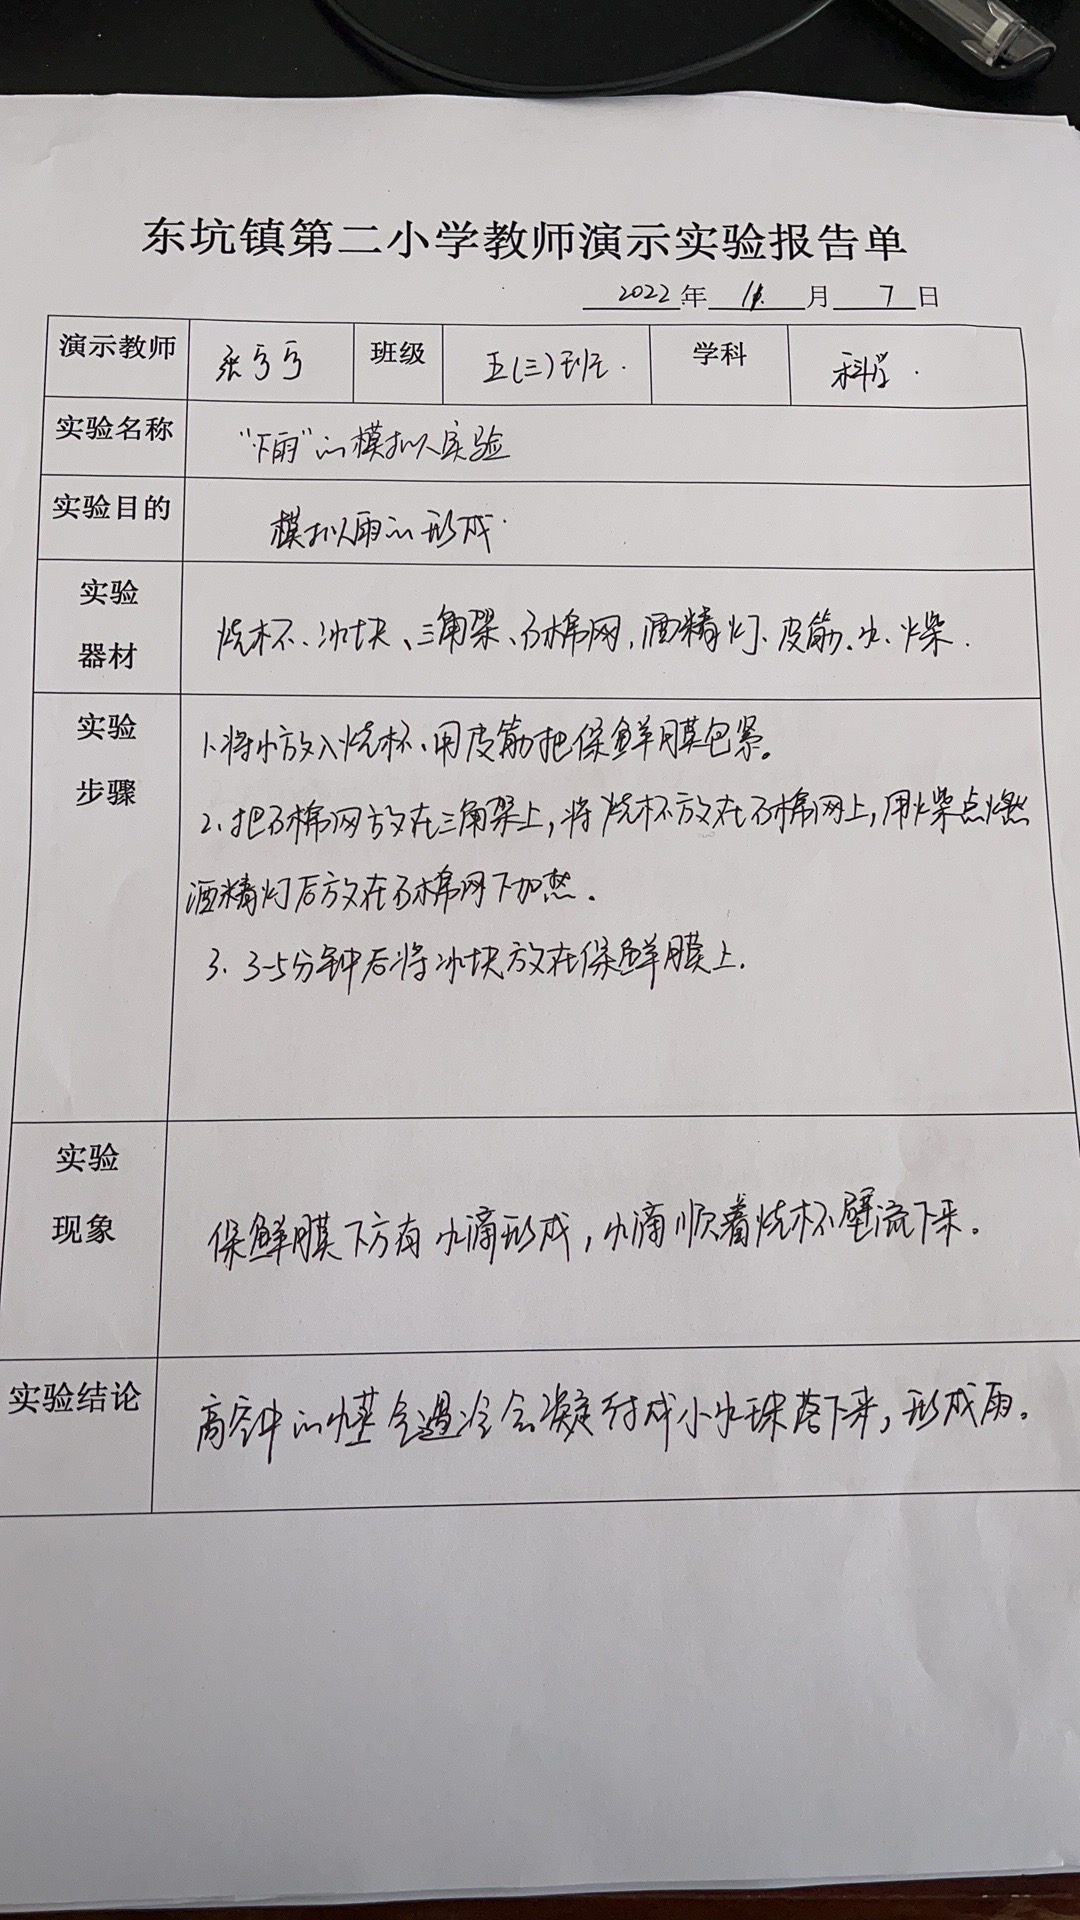 东坑镇第二小学教师演示实验报告单
2022 年 11 月 7 日
演示教师 张 班级 五(三)班. 学科 科学.
实验名称 “下雨”的模拟实验
实验目的 模拟雨的形成.
实验器材 烧杯、冰块、三角架、石棉网,酒精灯、皮筋、水、火柴.
实验步骤 1.将水放入烧杯、用皮筋把保鲜膜包紧。
2.把石棉网放在三角架上,将烧杯放在石棉网上,用火柴点燃
酒精灯后放在石棉网下加热.
3. 3-5分钟后将冰块放在保鲜膜上.
实验现象 保鲜膜下方有水滴形成,水滴顺着烧杯壁流下来。
实验结论 高空中的水蒸气遇冷会凝结成小水珠落下来,形成雨。